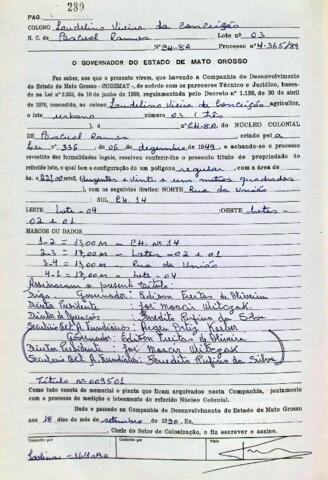 PAG. 239
COLONO Laudelino Vieira da Conceição
N. C. de Pascoal Ramos Lote nº 03
Nº CH-8A Processo nº 4.365/89
O GOVERNADOR DO ESTADO DE MATO GROSSO
Faz saber, aos que o presente virem, que havendo a Companhia de Desenvolvimento
do Estado de Mato Grosso - CODEMAT -, de acordo com os pareceres Técnico e Jurídico, basea-
do na Lei nº 2.903, de 10 de junho de 1969, regulamentada pelo Decreto nº 1.138, de 30 de abril
de 1970, concedido, ao colono Laudelino Vieira da Conceição, agricultor,
o lote urbano número 03 (três
) CH-8A, DO NÚCLEO COLONIAL
DE Pascoal Ramos, criado pela
Lei nº 336, de 06 de dezembro de 1949, e achando-se o processo
revestido das formalidades legais, resolveu conferir-lhe o presente título de propriedade do
referido lote, o qual tem a configuração de um polígono regular com a área de
221,00 m² Duzentos e vinte e um metros quadrados
), com os seguintes limites: NORTE Rua da União
; SUL CH. 14
LESTE Lote - 04 ;OESTE Lotes -
02 e 01
MARCOS OU DADOS
1-2 = 13,00 m - CH. Nº 14
2-3 = 17,00 m - Lotes - 02 e 01
3-4 = 13,00 m - Rua da União
4-1 = 17,00 m - Lote - 04
Assinaram o presente título:
Governador: Edison Freitas de Oliveira
Diretor Presidente: José Moacir
Benedito Rufino da Silva
Governador: Edison Freitas de Oliveira
Diretor Presidente: José Moacir
Benedito Rufino da Silva
Título Nº 009501
Como tudo consta de memorial e planta que ficam arquivados nesta Companhia, juntamente
com o processo de medição e loteamento do referido Núcleo Colonial.
Dado e passado na Companhia de Desenvolvimento do Estado de Mato Grosso
aos 18 dias do mês de setembro de 1990. Eu,
, Chefe do Setor de Colonização, o fiz escrever e assino.
Conferido por Conferido por Visto